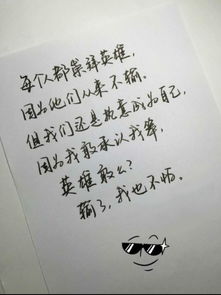 每个人都崇拜英雄，
因为他们从来不输，
但我们还是愿意成为自己，
因为我敢承认我笨，
英雄敢么？
输了，我也不怕。